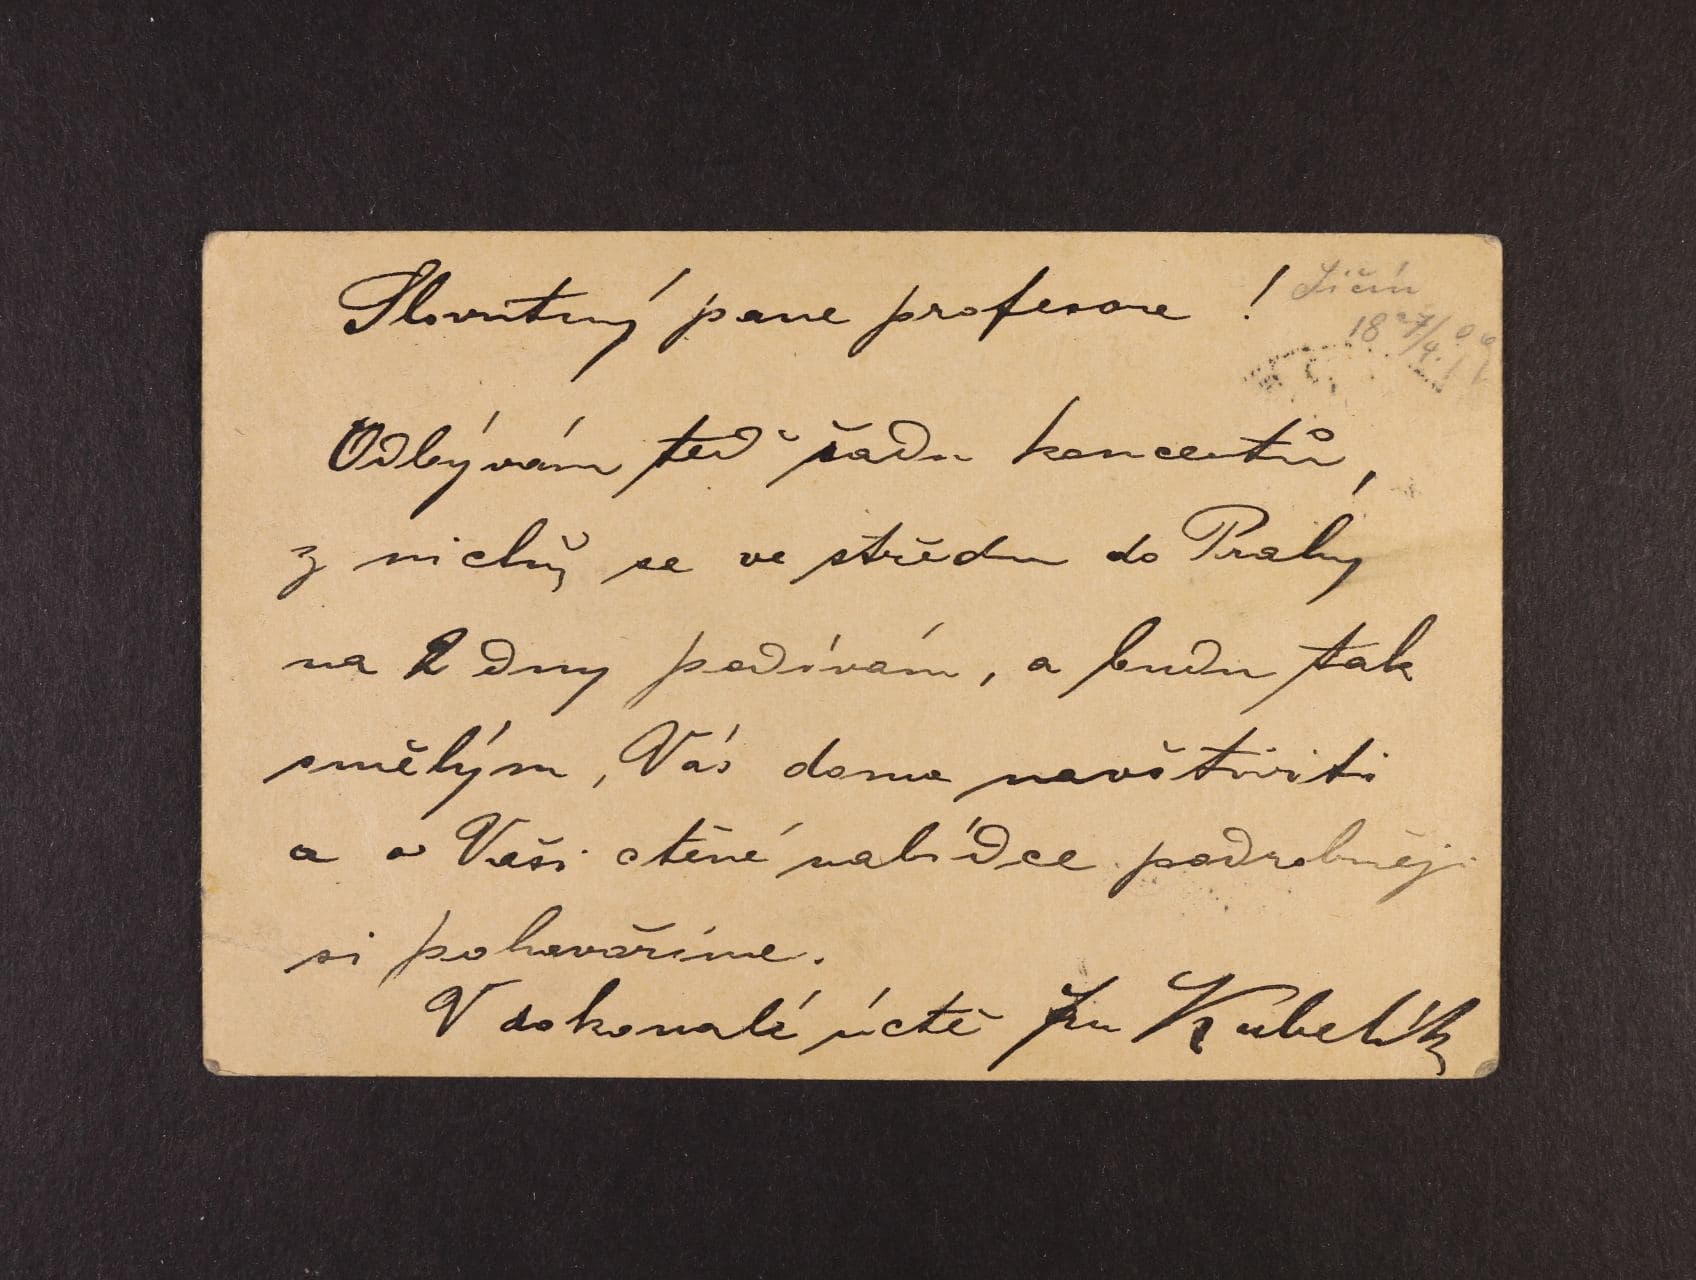 Slovutný pane profesore !
Jičín
18 27/4
Odbývám teď řadu koncertů,
z nichž se ve středu do Prahy
na 2 dny podívám, a budu tak
smělým, Vás doma navštíviti
a o Vaší ctěné nabídce podrobněji
si pohovoříme.
V dokonalé úctě Jan Kubelík